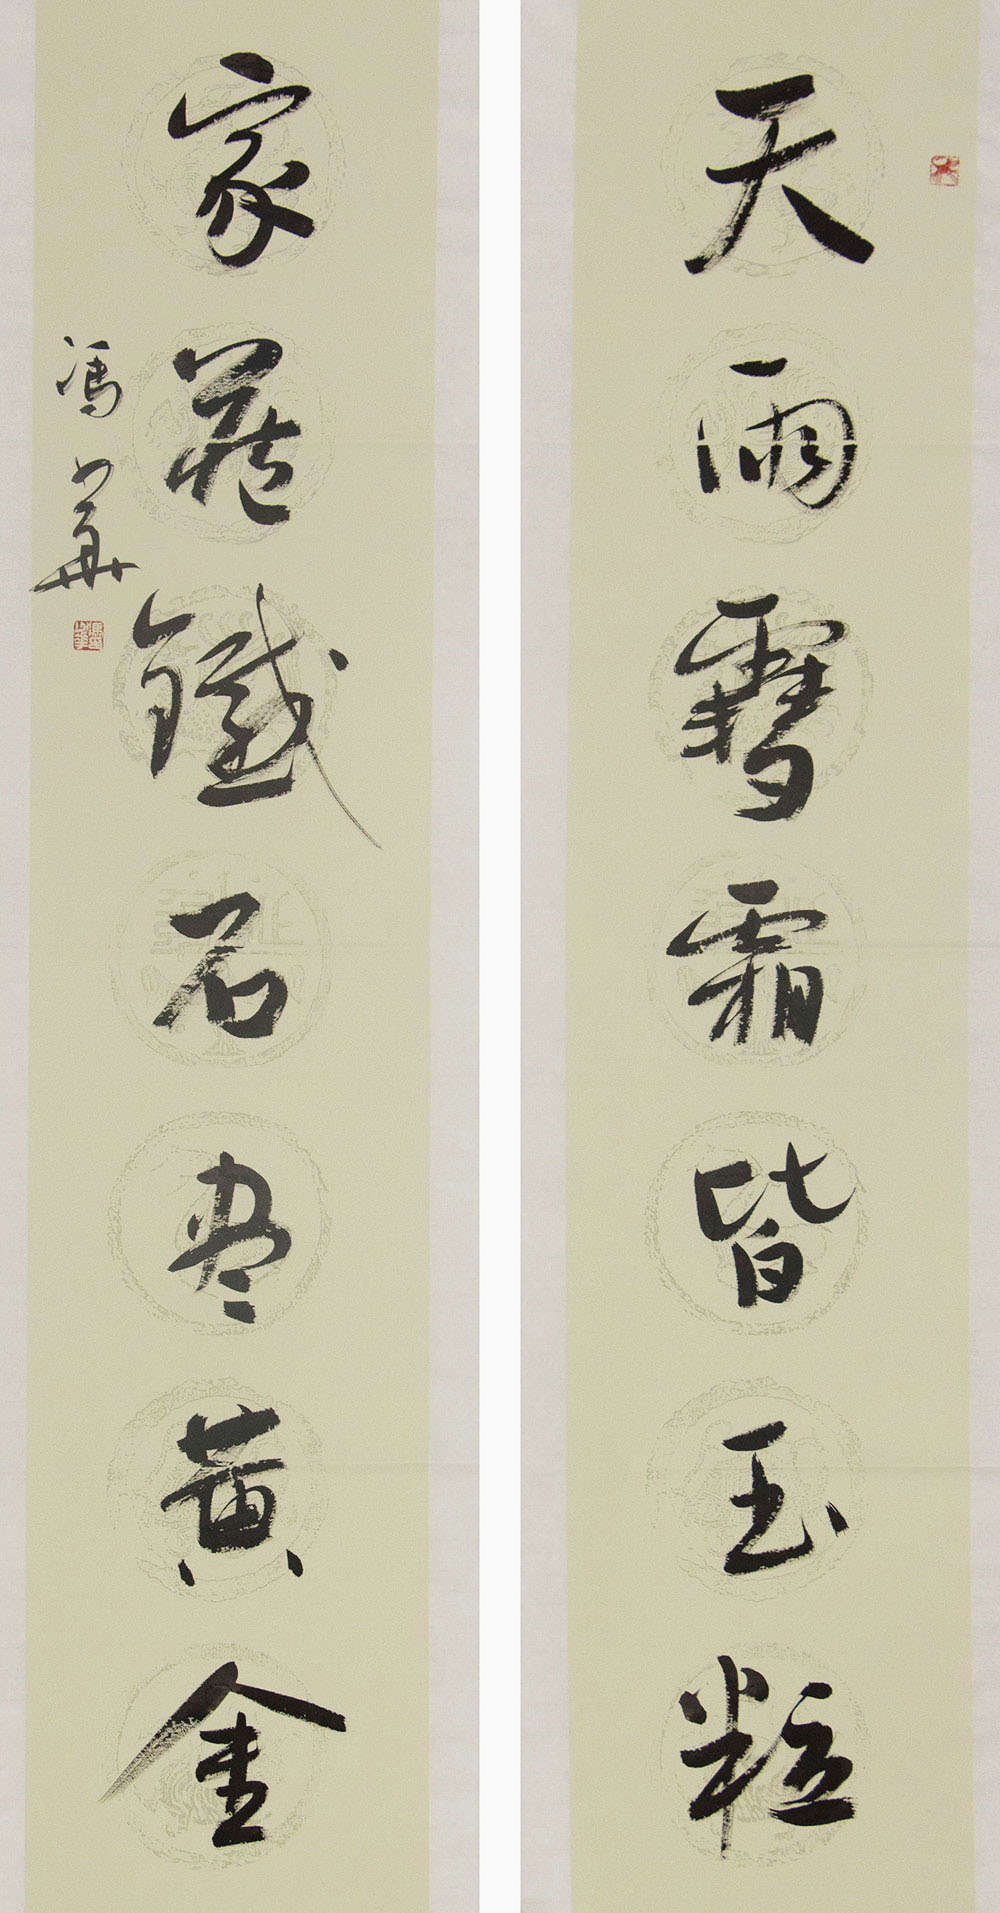 天雨雪霜皆玉粒
家藏鐵石尽黄金
馮少華